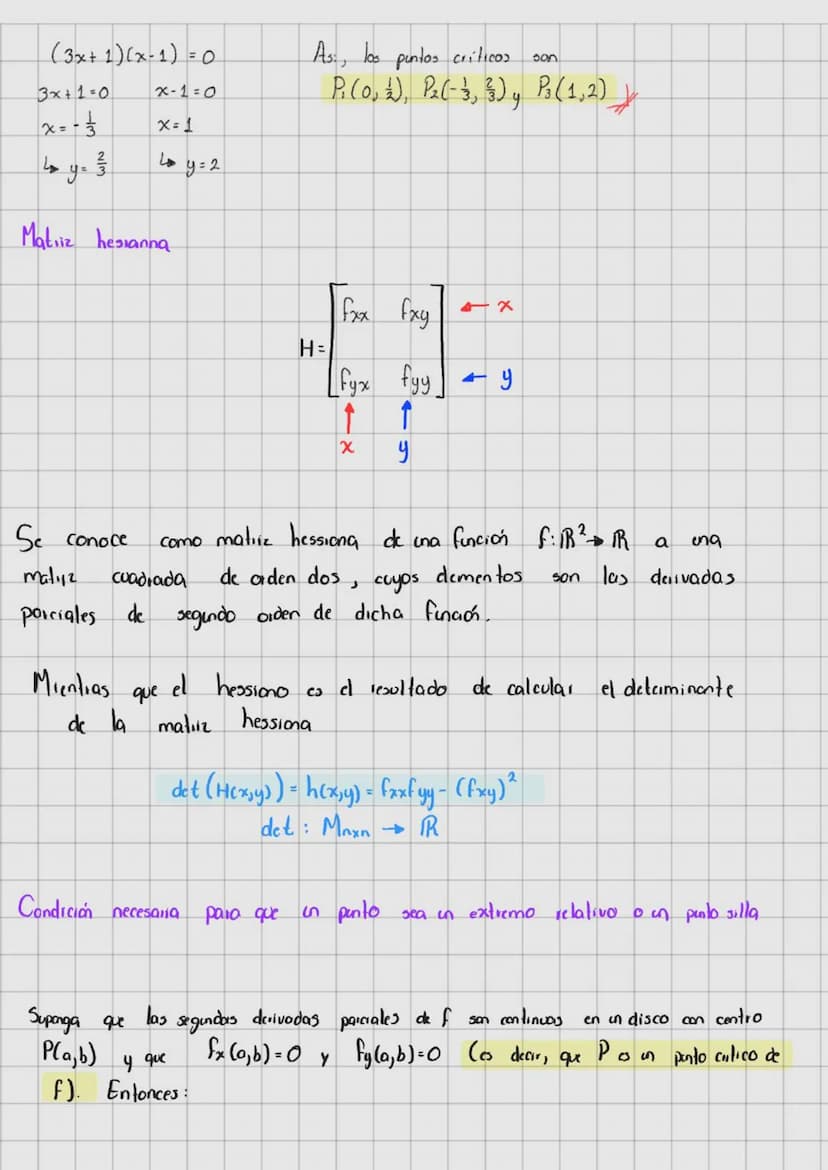 (3x+1)(x-1) = 0
3x+1=0 x-1=0
x = -1/3 x=1
↳ y = 2/3 ↳ y=2
Así, los puntos críticos son
P₁(0,1/2), P₂(-1/3, 2/3) y P₃(1,2)
Matriz hesianna
H = [fxx fxy] ← x
[fyx fyy] ← y
↑ ↑
x y
Se conoce como matriz hessiana de una función f: ℝ² → ℝ a una
matriz cuadrada de orden dos, cuyos elementos son las derivadas
parciales de segundo orden de dicha función.
Mientras que el hessiano es el resultado de calcular el determinante
de la matriz hessiana
det (H(x,y)) = h(x,y) = fxx fyy - (fxy)²
det : Mnxn → ℝ
Condición necesaria para que un punto sea un extremo relativo o un punto silla
Suponga que las segundas derivadas parciales de f son continuas en un disco con centro
P(a,b) y que fx(a,b)=0 y fy(a,b)=0 (es decir, que P es un punto crítico de
f). Entonces: